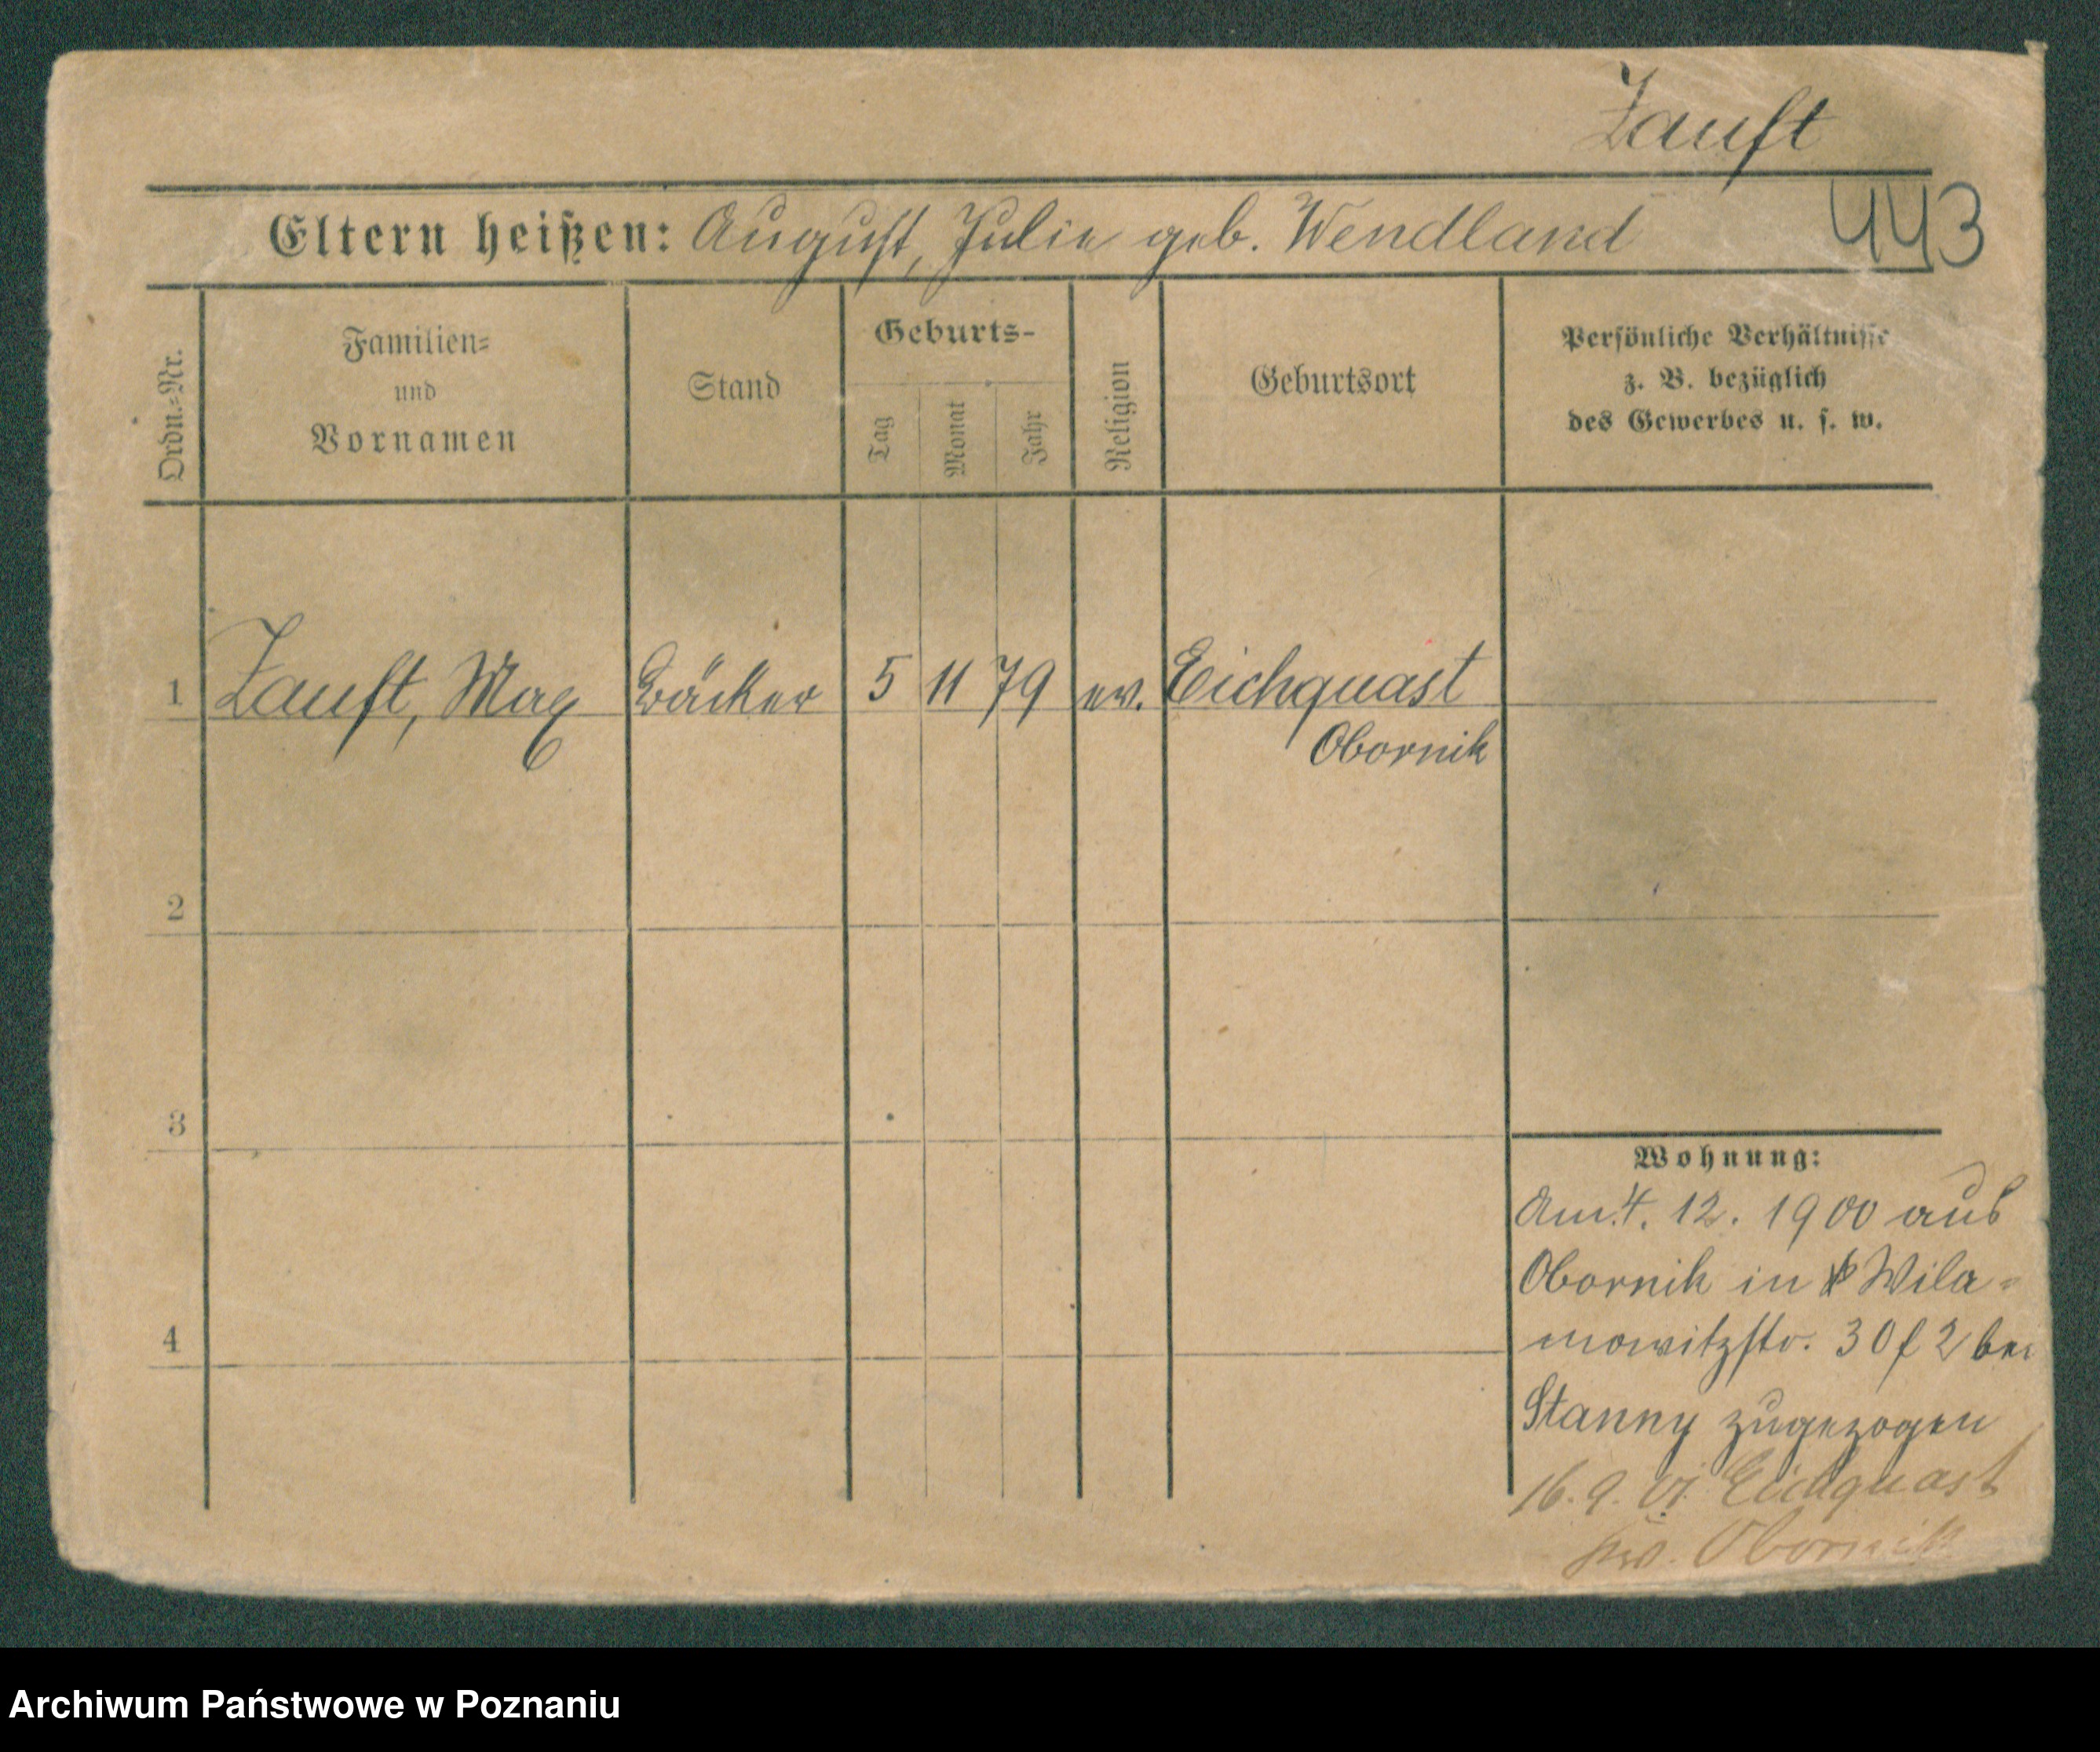 Zauft
443
Eltern heißen: August, Julie geb. Wendland
Ordn.-Nr.
Familien-
und
Vornamen
Stand
Geburts-
Tag
Monat
Jahr
Religion
Geburtsort
Persönliche Verhältnisse
z. B. bezüglich
des Gewerbes u. s. w.
1 Zauft, Max Bäcker 5 11 79 ev. Eichquast
Obornik
2
3
4
Wohnung:
Am 4. 12. 1900 aus
Obornik in Wila-
mowitzstr. 30 f 2 bei
Stanny zugezogen
16. 9. 01 Eichquast
Obornik
Archiwum Państwowe w Poznaniu